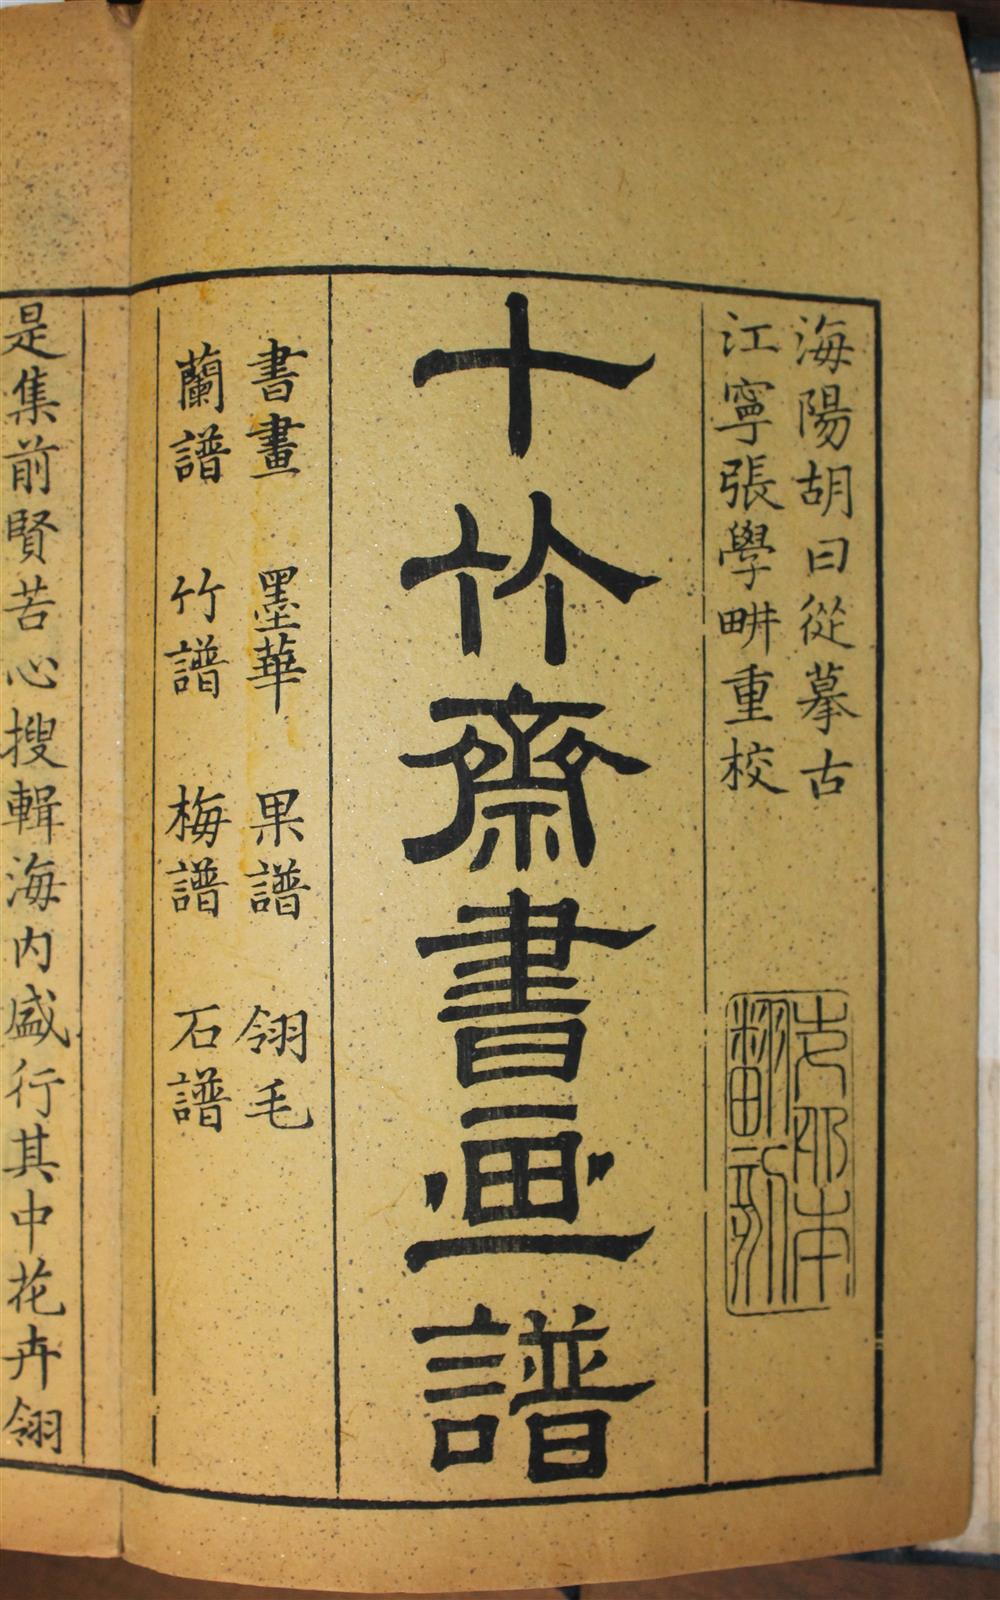 海陽胡曰從摹古
江寧張學畊重校
十竹齋書画譜
書畫 墨華 果譜 翎毛
蘭譜 竹譜 梅譜 石譜
是集前賢苦心搜輯海内盛行其中花卉翎